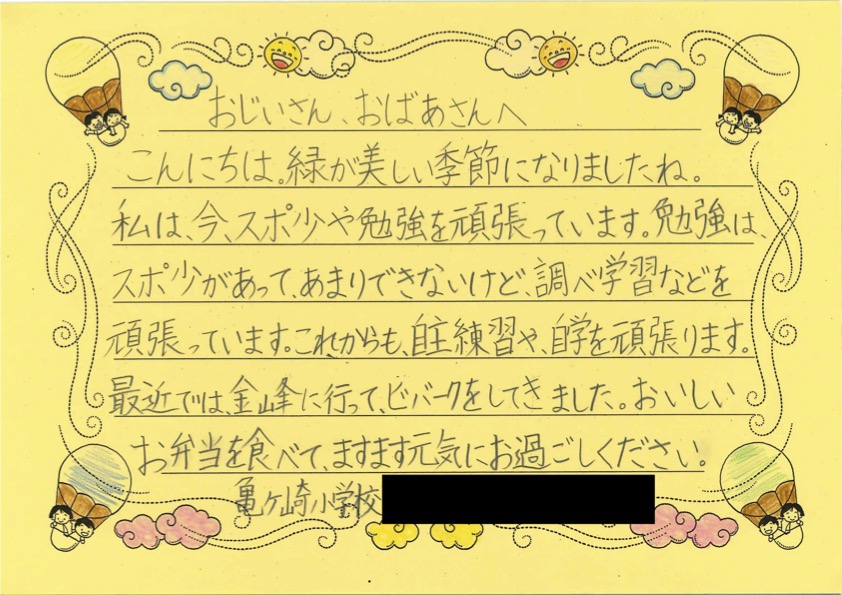 おじいさん、おばあさんへ
こんにちは。緑が美しい季節になりましたね。
私は、今、スポ少や勉強を頑張っています。勉強は、
スポ少があって、あまりできないけど、調べ学習などを
頑張っています。これからも、自主練習や、自学を頑張ります。
最近では、金峰に行って、ビバークをしてきました。おいしい
お弁当を食べて、ますます元気にお過ごしください。
亀ヶ崎小学校